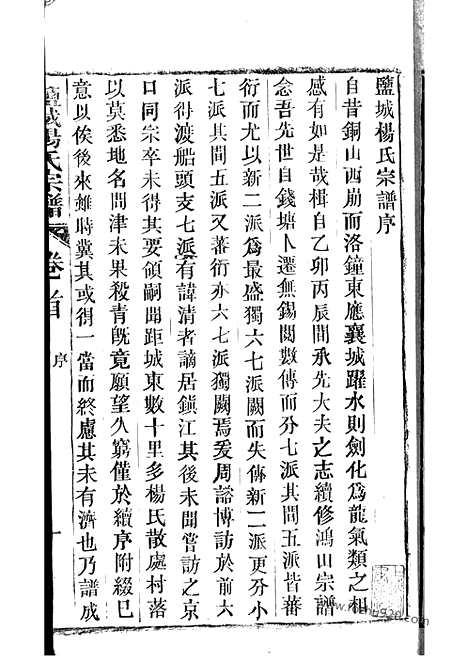 鹽城楊氏宗譜序
自昔銅山西崩而洛鐘東應襄城躍水則劍化爲龍氣類之相
感有如是哉楫自乙卯丙辰間承先大夫之志續修鴻山宗譜
念吾先世自錢塘卜遷無錫閱數傳而分七派其間五派皆蕃
衍而尤以新二派爲最盛獨六七派闕而失傳新二派更分小
七派其間五派又蕃衍亦六七派獨闕焉爰周諮博訪於前六
派得渡船頭支七派有諱清者謫居鎭江其後未聞嘗訪之京
口同宋卒未得其要領嗣聞距城東數十里多楊氏散處村落
以莫悉地名問津未果殺青旣竟願望久窮僅於續序附綴巳
意以俟後來雖時冀其或得一當而終慮其未有濟也乃譜成
鹽城楊氏宗譜
卷首
序
一